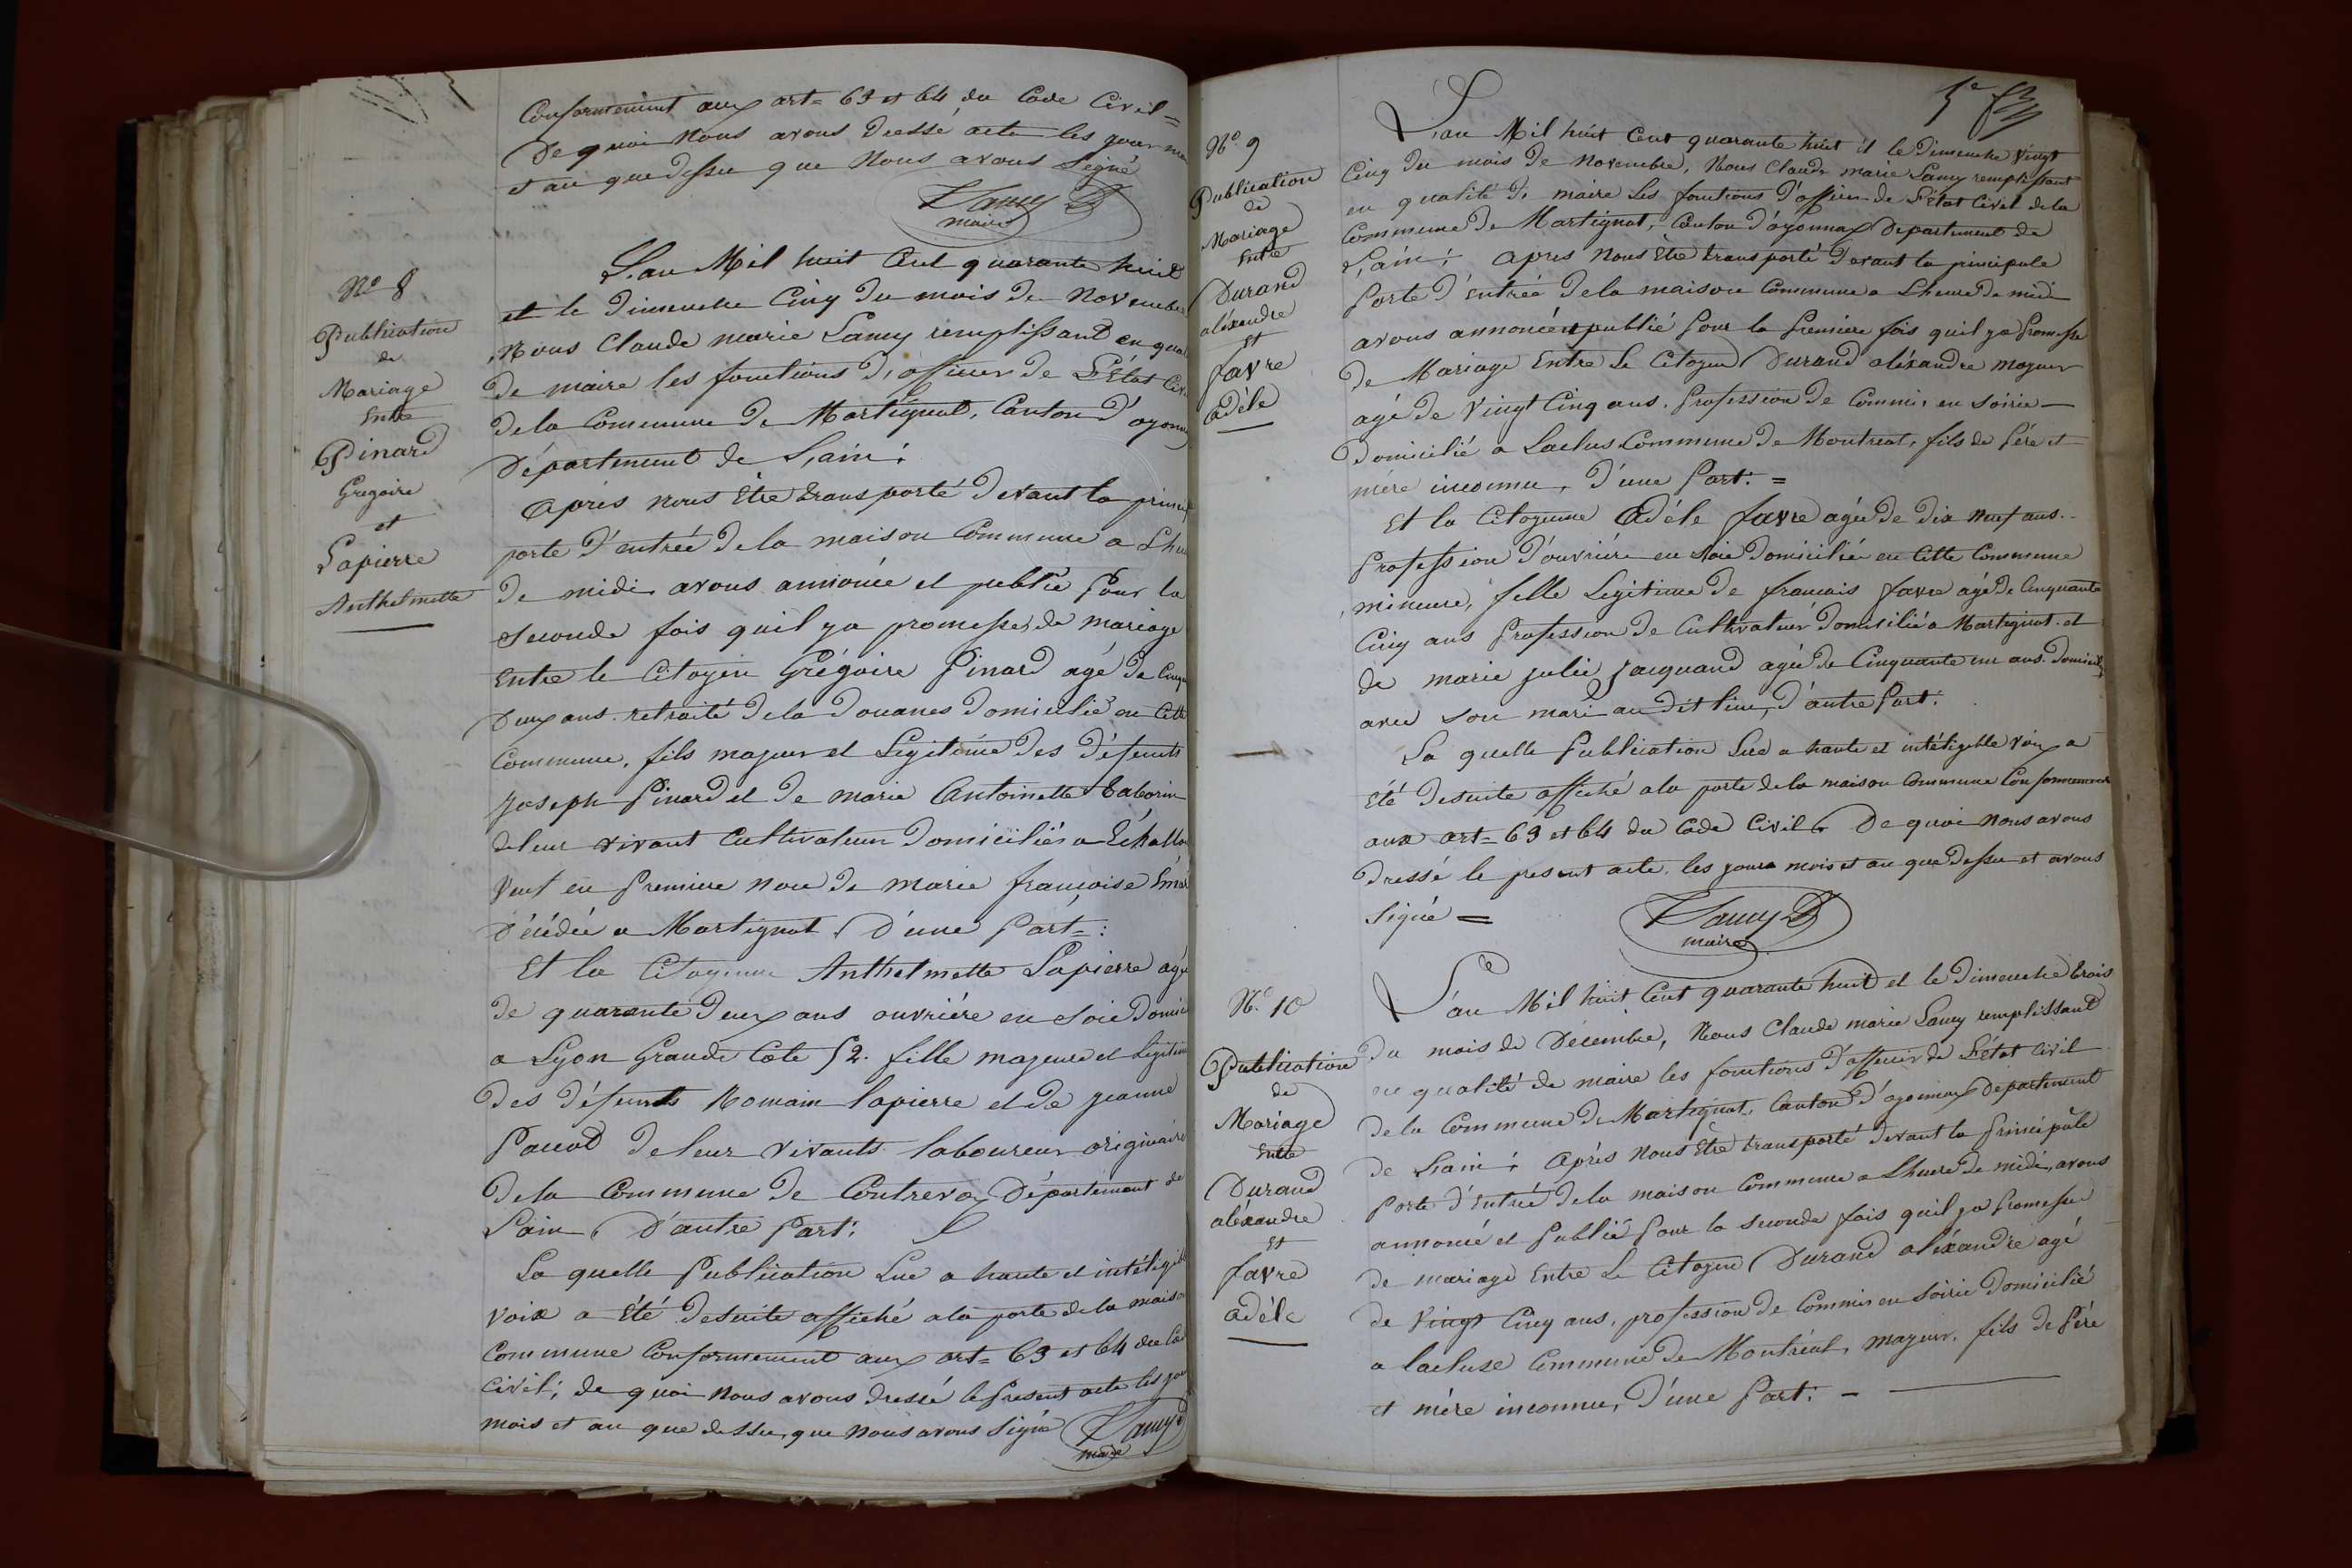 Conformement aux art= 63 et 64 du Code Civil=
De quoi Nous avons dressé acte les jour
et an que dessu que Nous avons Signé
Lamy
maire
N° 8
Publication
de
Mariage
Entre
Pinard
Gregoire
et
Lapierre
Anthelmette
L'an Mil huit Cent quarante huit
et le dimenche Cinq du mois de Novembre
Nous Claude marie Lamy remplissant en qua
de maire les fonctions d'officier de L'Etat Civ
de la Commune de Martignat, Canton d'oyonna
Département de L'ain;
Après nous être transporté devant la princip
porte d'entrée de la maison Commune a L'heu
de midi avons annoncé et publié Pour la
Seconde fois quil ya promesse de mariage
Entre le Citoyen Grégoire Pinard agé de Cinqu
Deux ans retraité de la Douanes Domicilié en Cette
Commune, fils majeur et Légitime des défunts
Joseph Pinard et de marie Antoinette Taborin
de leur vivant Cultivateur Domiciliés a Echallo
Veuf en Premiere Noce de marie françoise
Décédée a Martignat, D'une Part=:
Et la Citoyenne Anthelmette Lapierre agée
de quarante deux ans ouvriére en Soie Domici
a Lyon Grande Cote 52. fille majeure et Légitime
des défunts Romain lapierre et de jeanne
de leur vivants laboureur originaire
de la Commune de Contrevoz Département de
L'ain, D'autre Part:
La quelle Publication Lue a haute et intéligible
voix a été desuite affiché a la porte de la maison
Commune Conformement aux art= 63 et 64 du Co
Civil; de quoi nous avons dressé le Present acte les jour
mois et an que dessu, que nous avons Signé
Lamy
maire
5e
N° 9
Publication
de
Mariage
Entre
Durand
aléxandre
et
favre
adèle
L'an Mil huit Cent quarante huit et le Dimenche Vingt
Cinq du mois de Novembre, Nous Claude marie Lamy remplissant
en qualité de maire les fonctions d'officier de L'état Civil de la
Commune de Martignat, Canton d'oyonnax Departement de
L'ain; apres Nous être transporté devant la principale
Porte d'entrée de la maison Commune a L'heure de midi
avons annoncé et publié Pour la Première fois quil ya Promesse
de Mariage Entre Le Citoyen Durand aléxandre majeur
agé de Vingt Cinq ans. Profession de Commis en Soirie
Domicilié a Laclus Commune de Montreal, fils de Pére et
mére inconnu, d'une Part: =
Et la Citoyenne Adéle favre agée de dix neuf ans.
Profession d'ouvriére en Soie Domiciliée en Cette Commune
mineure, fille Legitime de francois favre agé de Cinquante
Cinq ans Profession de Cultivateur Domicilié a Martignat. et
de marie julie jacquand agée de Cinquante un ans. Domiciliée
avec Son mari au dit lieu, d'autre Part:
La quelle Publication Lue a haute et intéligible voix a
été desuite affiché a la porte de la maison Commune Conformement
aux art= 63 et 64 du Code Civil. De quoi Nous avons
dressé le present acte, les jours mois et an que dessu et avons
Signé =
Lamy
maire
N° 10
Publication
de
Mariage
Entre
Durand
aléxandre
Et
favre
adèle
L'an Mil huit Cent quarante huit et le Dimenche trois
du mois de Décembre, Nous Claude marie Lamy remplissant
en qualité de maire les fonctions d'officier de L'état Civil
de la Commune de Martignat, Canton d'oyonnax Departement
de L'ain; Après Nous être transporté devant la Principale
Porte d'Entrée de la maison Commune a L'heure de midi, avons
annoncé et Publié Pour la Seconde fois quil ya Promesse
de mariage Entre Le Citoyen Durand aléxandre agé
de Vingt Cinq ans, profession de Commis en Soirie Domicilié
a lacluse Commune de Montréal, majeur, fils de Pére
et mére inconnu, D'une Part: -